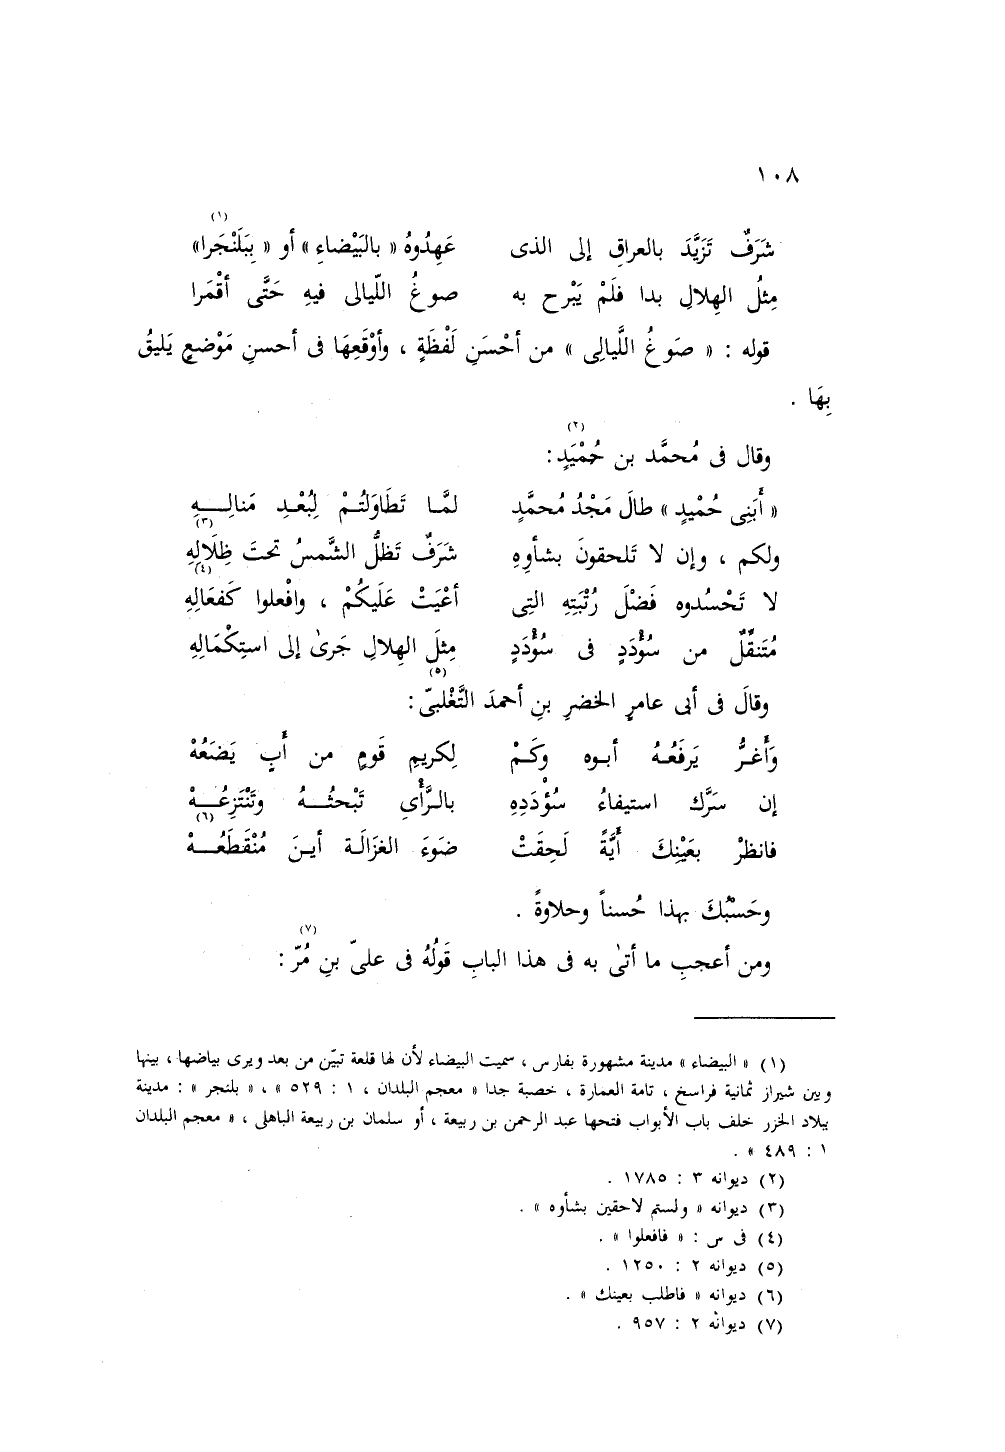 ١٠٨
شَرَفٌ تَزَيَّدَ بالعراقِ إلى الذى عَهِدُوهُ « بالبَيْضاءِ » أو « بِبَلَنْجَرا » (١)
مِثلُ الهِلالِ بدا فلَمْ يَبْرح به صوغُ اللّيالى فيهِ حَتَّى أقْمَرا
قوله : « صَوغُ اللَّيالِى » من أحْسَنِ لَفْظَةٍ ، وأوْقَعِهَا فى أحسنِ مَوْضعٍ يَليقُ
بِهَا .
وقال فى مُحمَّد بن حُمْيَدٍ (٢) :
« أَبَنِى حُمْيدٍ » طالَ مَجْدُ مُحمَّدٍ لمَّا تَطَاوَلتُمْ لِبُعْدِ مَنالِهِ
ولكم ، وإن لا تَلحقونَ بشأوِهِ شَرَفٌ تَظلُّ الشَّمسُ تحتَ ظِلَالِهِ (٣)
لا تَحْسُدوه فَضْلَ رُتْبَتِهِ التِى أعْيَتْ عَلَيكُمْ ، وافْعلوا كَفَعَالِهِ (٤)
مُتَنقِّلٌ من سُؤْدَدٍ فى سُؤْدَدٍ مِثلَ الهِلالِ جَرىٰ إلى استِكْمَالِهِ
وقالَ فى أبى عامرٍ الخضرِ بنِ أحمدَ التَّغْلبىّ (٥) :
وَأَغرُّ يَرفَعُهُ أبوه وكَمْ لِكريمِ قَومٍ من أَبٍ يَضَعُهْ
إن سَرَّكَ استيفاءُ سُؤْدَدِهِ بالرَّأْىِ تَبْحثُهُ وتَنْتَزِعُهْ
فانظرْ بعَيْنِكَ أَيَّةً لَحِقَتْ ضَوءَ الغزَالَة أينَ مُنْقَطَعُهْ (٦)
وحَسْبُكَ بهذا حُسناً وحلاوةً .
ومن أعجبِ ما أتىٰ به فى هذا البابِ قَولُهُ فى علىّ بنِ مُرّ (٧) :
(١) « البيضاء » مدينة مشهورة بفارس ، سميت البيضاء لأن لها قلعة تبيّن من بعد ويرى بياضها ، بينها
وبين شيراز ثمانية فراسخ ، تامة العمارة ، خصبة جدا « معجم البلدان ، ١ : ٥٢٩ » ، « بلنجر » : مدينة
ببلاد الخزر خلف باب الأبواب فتحها عبد الرحمن بن ربيعة ، أو سلمان بن ربيعة الباهلى ، « معجم البلدان
١ : ٤٨٩ » .
(٢) ديوانه ٣ : ١٧٨٥ .
(٣) ديوانه « ولستم لاحقين بشأوه » .
(٤) فى س : « فافعلوا » .
(٥) ديوانه ٢ : ١٢٥٠ .
(٦) ديوانه « فاطلب بعينك » .
(٧) ديوانه ٢ : ٩٥٧ .